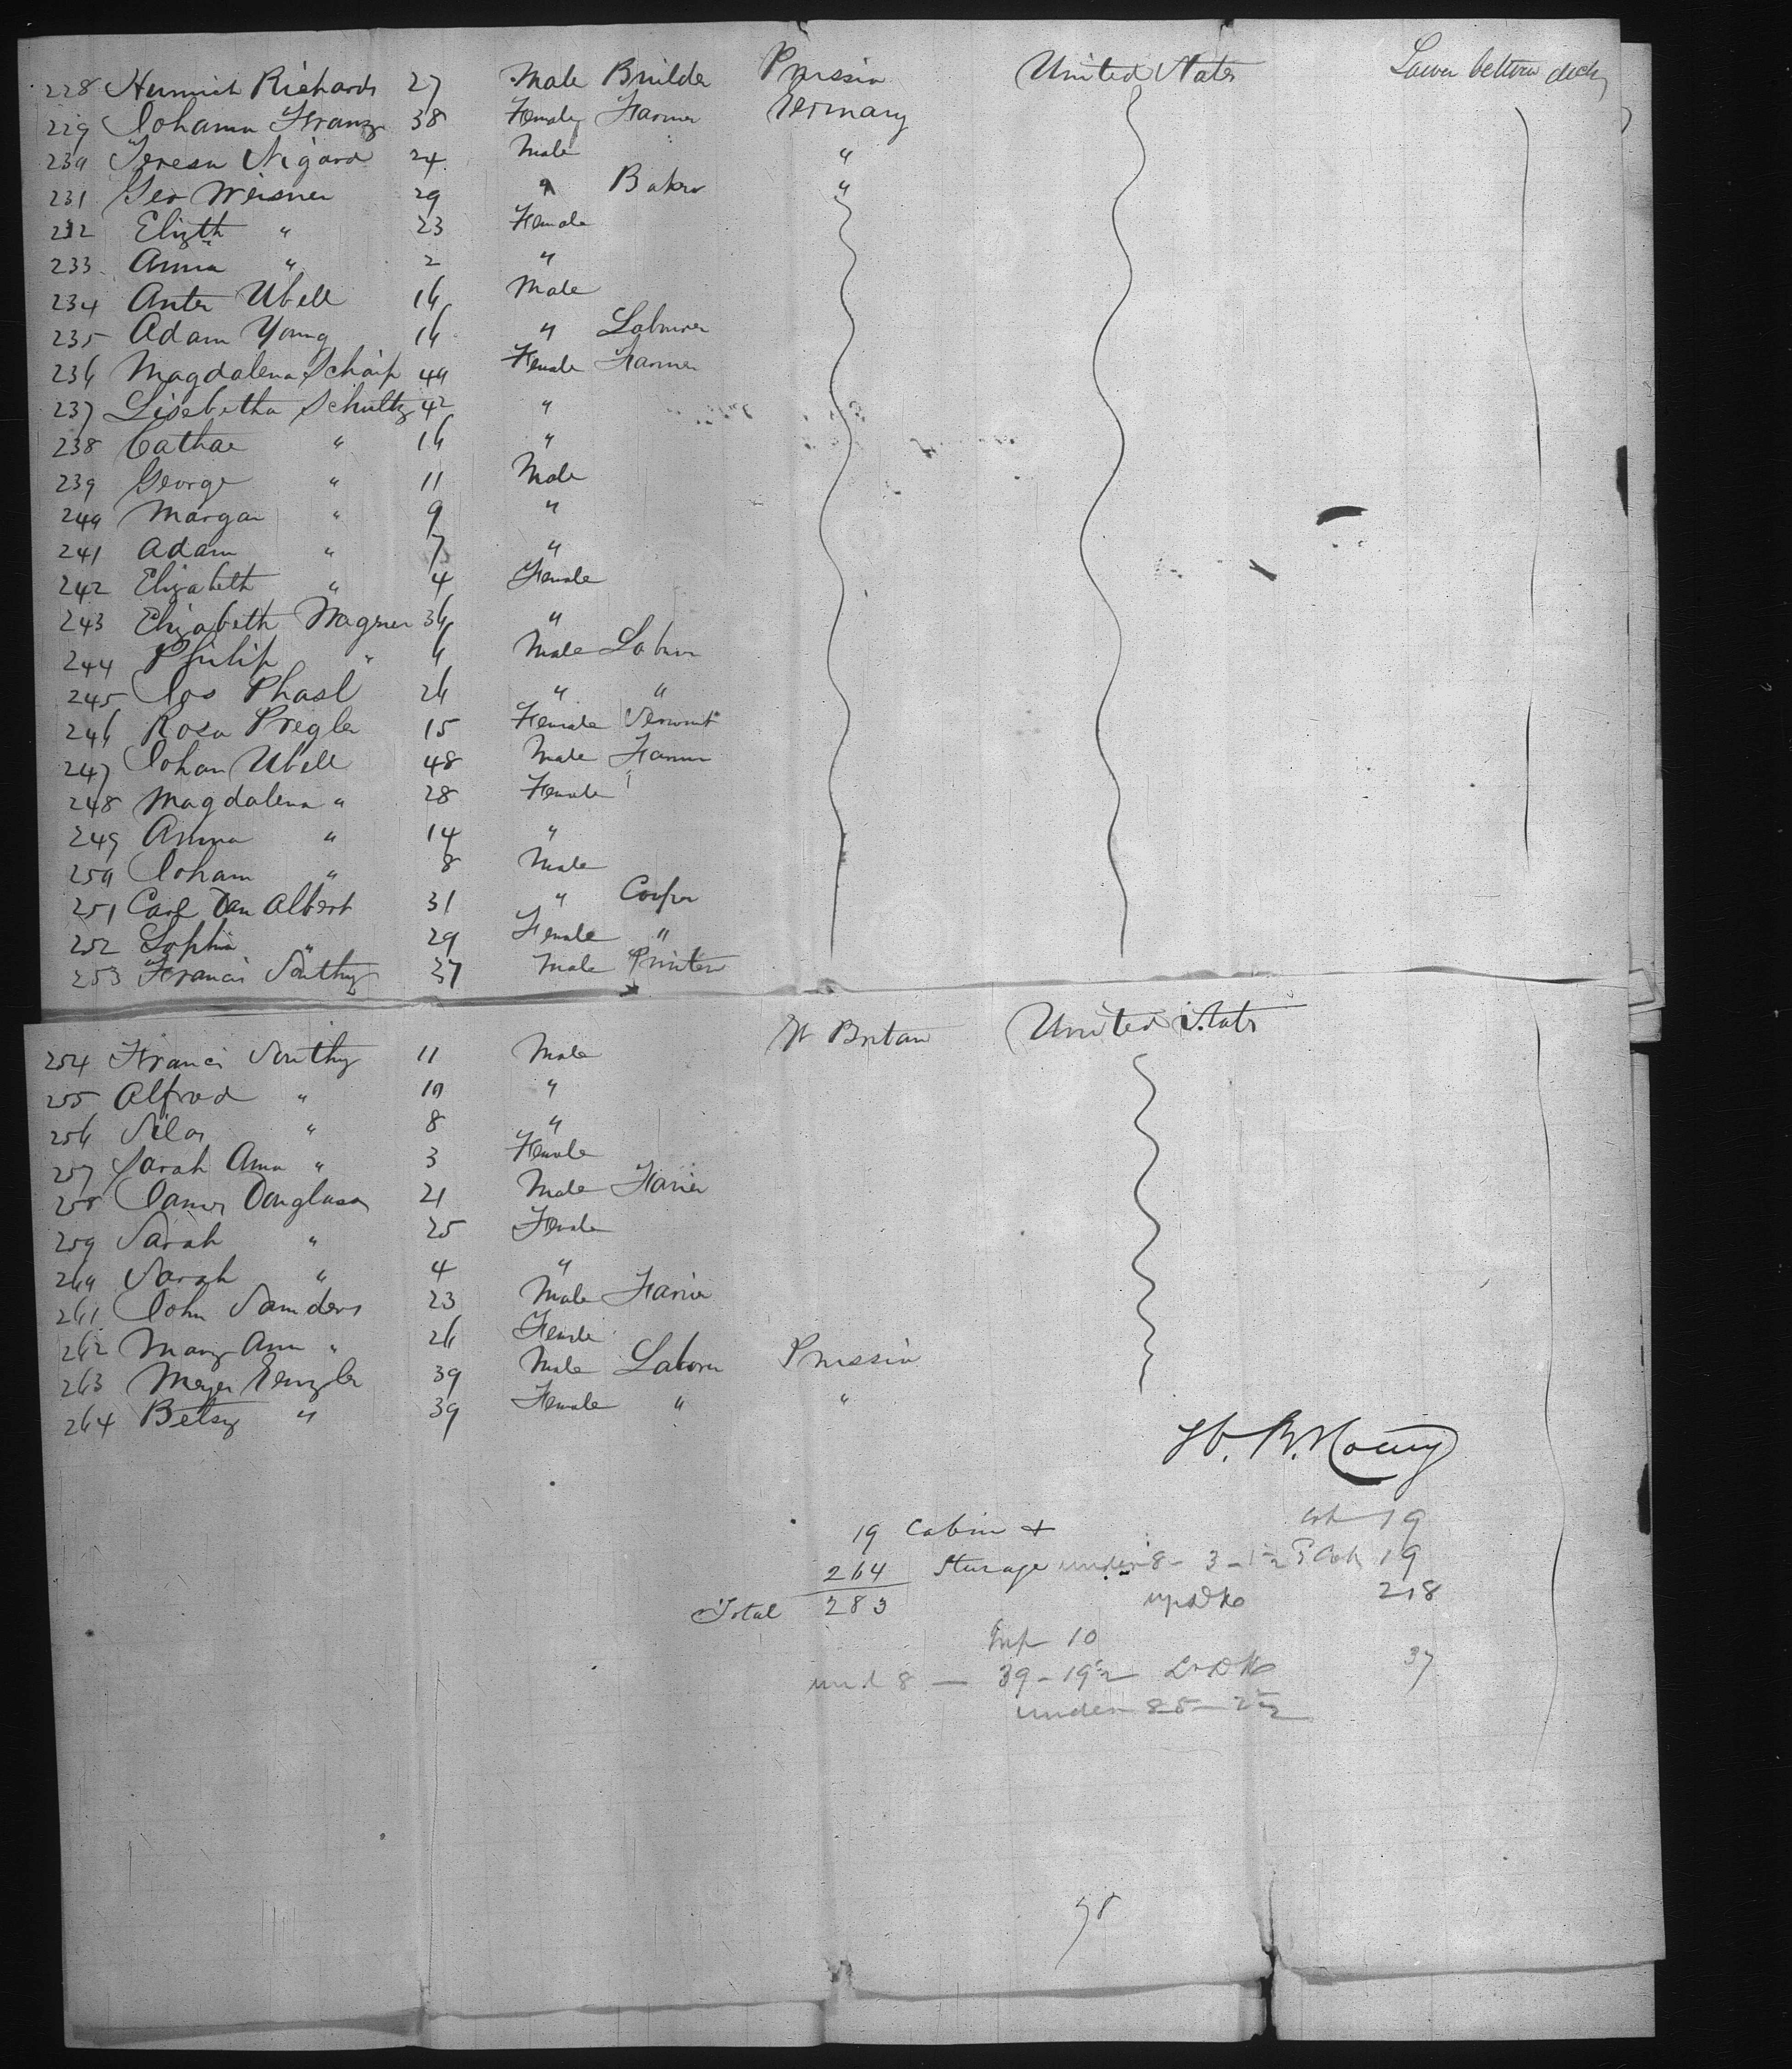 228 Heinrich Richards 27 Male Builder Prussia United States Lower between decks
229 Johanna Franz 38 Female Farmer Germany
230 Teresa Nigard 24 Male "
231 Geo Weisner 29 " Baker "
232 Elizth " 23 Female
233 Anna " 2 "
234 Anter Ubell 16 Male
235 Adam Young 16 " Labourer
236 Magdalena Schaip 40 Female Farmer
237 Lisebetha Schultz 42 "
238 Cathae " 16 "
239 George " 11 Male
240 Margar " 9 "
241 Adam " 7 "
242 Elizabeth " 4 Female
243 Elizabeth Wagner 36 "
244 Philip " 6 Male Labour
245 Jos Phasl 26 " "
246 Rosa Pregler 15 Female Servant
247 Johan Ubell 48 Male Farmer
248 Magdalena " 28 Female "
249 Anna " 14 "
250 Joham " 8 Male
251 Carl Van Albert 31 " Cooper
252 Sophia " 29 Female "
253 Francis Southy 37 Male Printer
254 Francis Southy 11 Male Gt Britan United States
255 Alfred " 10 "
256 Silas " 8 "
257 Sarah Ann " 3 Female
258 James Douglason 21 Male Farier
259 Sarah " 25 Female
260 Sarah " 4 "
261 John Saunders 23 Male Farier
262 Mary Ann " 26 Female
263 Meyer Genzler 39 Male Laborer Prussia
264 Betsy " 39 Female " "
19 Cabin + 19
264 Sturage under 8 - 3 - 1½ 19
Total 283 up D K 218
Inf 10
und 8 — 39 - 19½ 37
under 8 5 - 2½